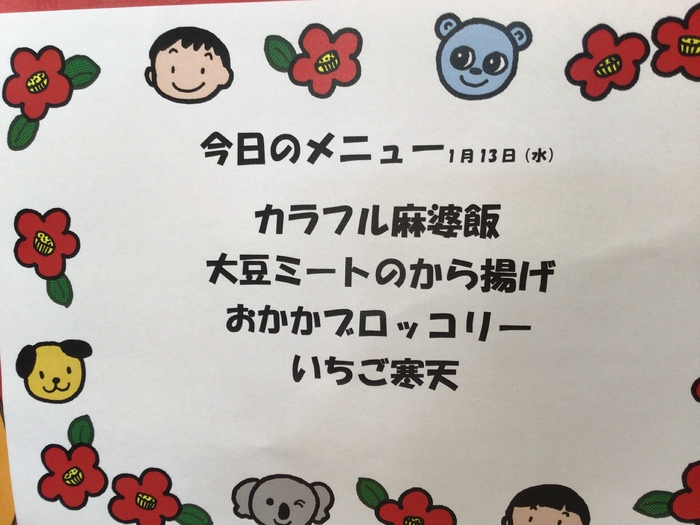 今日のメニュー1月13日（水）
カラフル麻婆飯
大豆ミートのから揚げ
おかかブロッコリー
いちご寒天